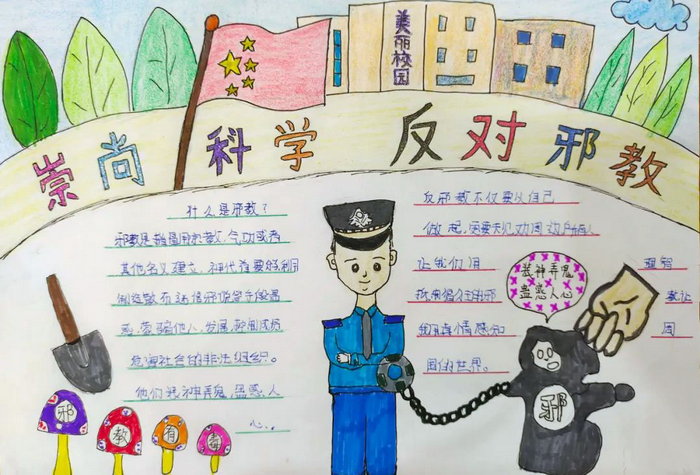 美丽校园
崇尚 科学 反对邪教
什么是邪教?
邪教是指冒用宗教、气功或者
其他名义建立、神化首要分子利用
制造散布迷信邪说等手段蛊
惑、蒙骗他人,发展、控制成员
危害社会的非法组织。
他们装神弄鬼,蛊惑人
心..
反邪教不仅要从自己
做起,
让我们用 理智
邪 教 让
我们 真情感知 周
围的世界。
装神弄鬼
蛊惑人心
邪
邪
教
有
毒